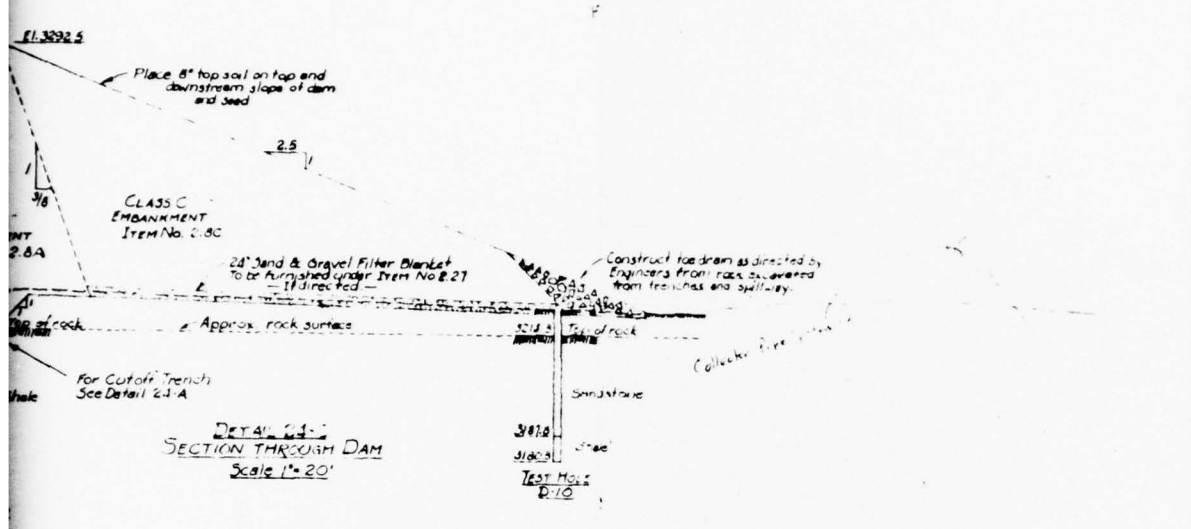 El. 3292.5
Place 8" top soil on top and
downstream slope of dam
and seed
2.5
1
1
3/8
CLASS C
EMBANKMENT
ITEM No. 2.8C
2.8A
24" Sand & Gravel Filter Blanket
To be furnished under ITEM No 2.27
— If directed —
Construct toe drain as directed by
Engineers from rock excavated
from trenches and spillway.
Top of rock
Approx. rock surface
Top of rock
Collector Pipe
For Cutoff Trench
See Detail 24-A
Sandstone
3187.8
3180.3
DETAIL
SECTION THROUGH DAM
Scale 1"= 20'
TEST HOLE
D-10